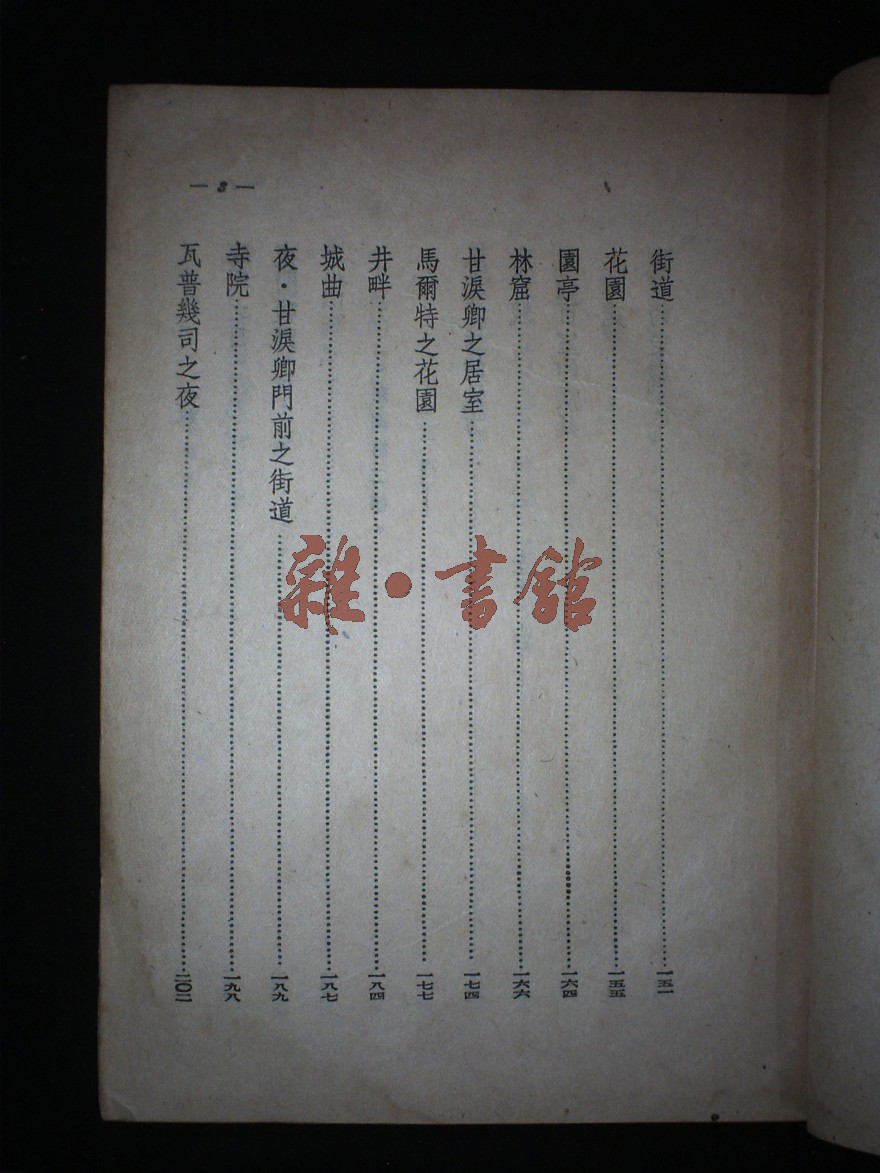 — 3 —
街道……一五一
花園……一五五
園亭……一六四
林窟……一六六
甘淚卿之居室……一七四
馬爾特之花園……一七七
井畔……一八四
城曲……一八七
夜·甘淚卿門前之街道……一八九
寺院……一九八
瓦普幾司之夜……二〇二
雜·書館